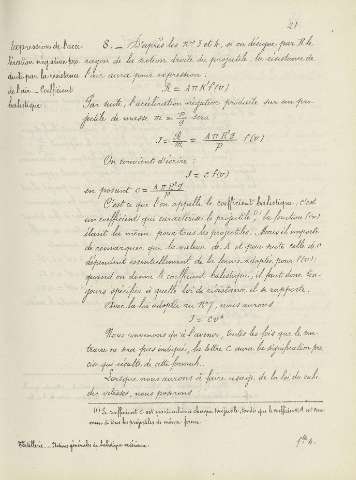 21
Expression de l'accé-
lération négative pro-
duite par la résistance
de l'air - Coefficient
balistique
8. — D'après les Nos 3 et 4, si on désigne par R le
rayon de la section droite du projectile, la résistance de
l'air aura pour expression.
R = AπR²f(v)
Par suite, l'accélération négative produite sur un pro-
jectile de masse m = p/g sera
J = R/m = AπR²g/p f(v)
On convient d'écrire :
J = c f(v)
en posant c = AπR²g/p
C'est ce que l'on appelle le coefficient balistique, c'est
un coefficient qui caractérise le projectile (1) la fonction f(v)
étant la même pour tous les projectiles. Mais il importe
de remarquer que la valeur de A et par suite celle de c
dépendent essentiellement de la forme adoptée pour f(v);
quand on donne le coefficient balistique, il faut donc tou-
jours spécifier à quelle loi de résistance il se rapporte.
Avec la loi adoptée au No 7, nous aurons
J = cv⁴
Nous convenons qu'à l'avenir, toutes les fois que le con-
traire ne sera pas indiqué, la lettre c aura la signification pré-
cise qui résulte de cette formule.
Lorsque nous aurons à faire usage de la loi du cube
des vitesses, nous poserons
(1) Le coefficient c est particulier à chaque projectile, tandis que le coefficient A est com-
mun à tous les projectiles de même forme.
Artillerie. — Notions générales de balistique extérieure.